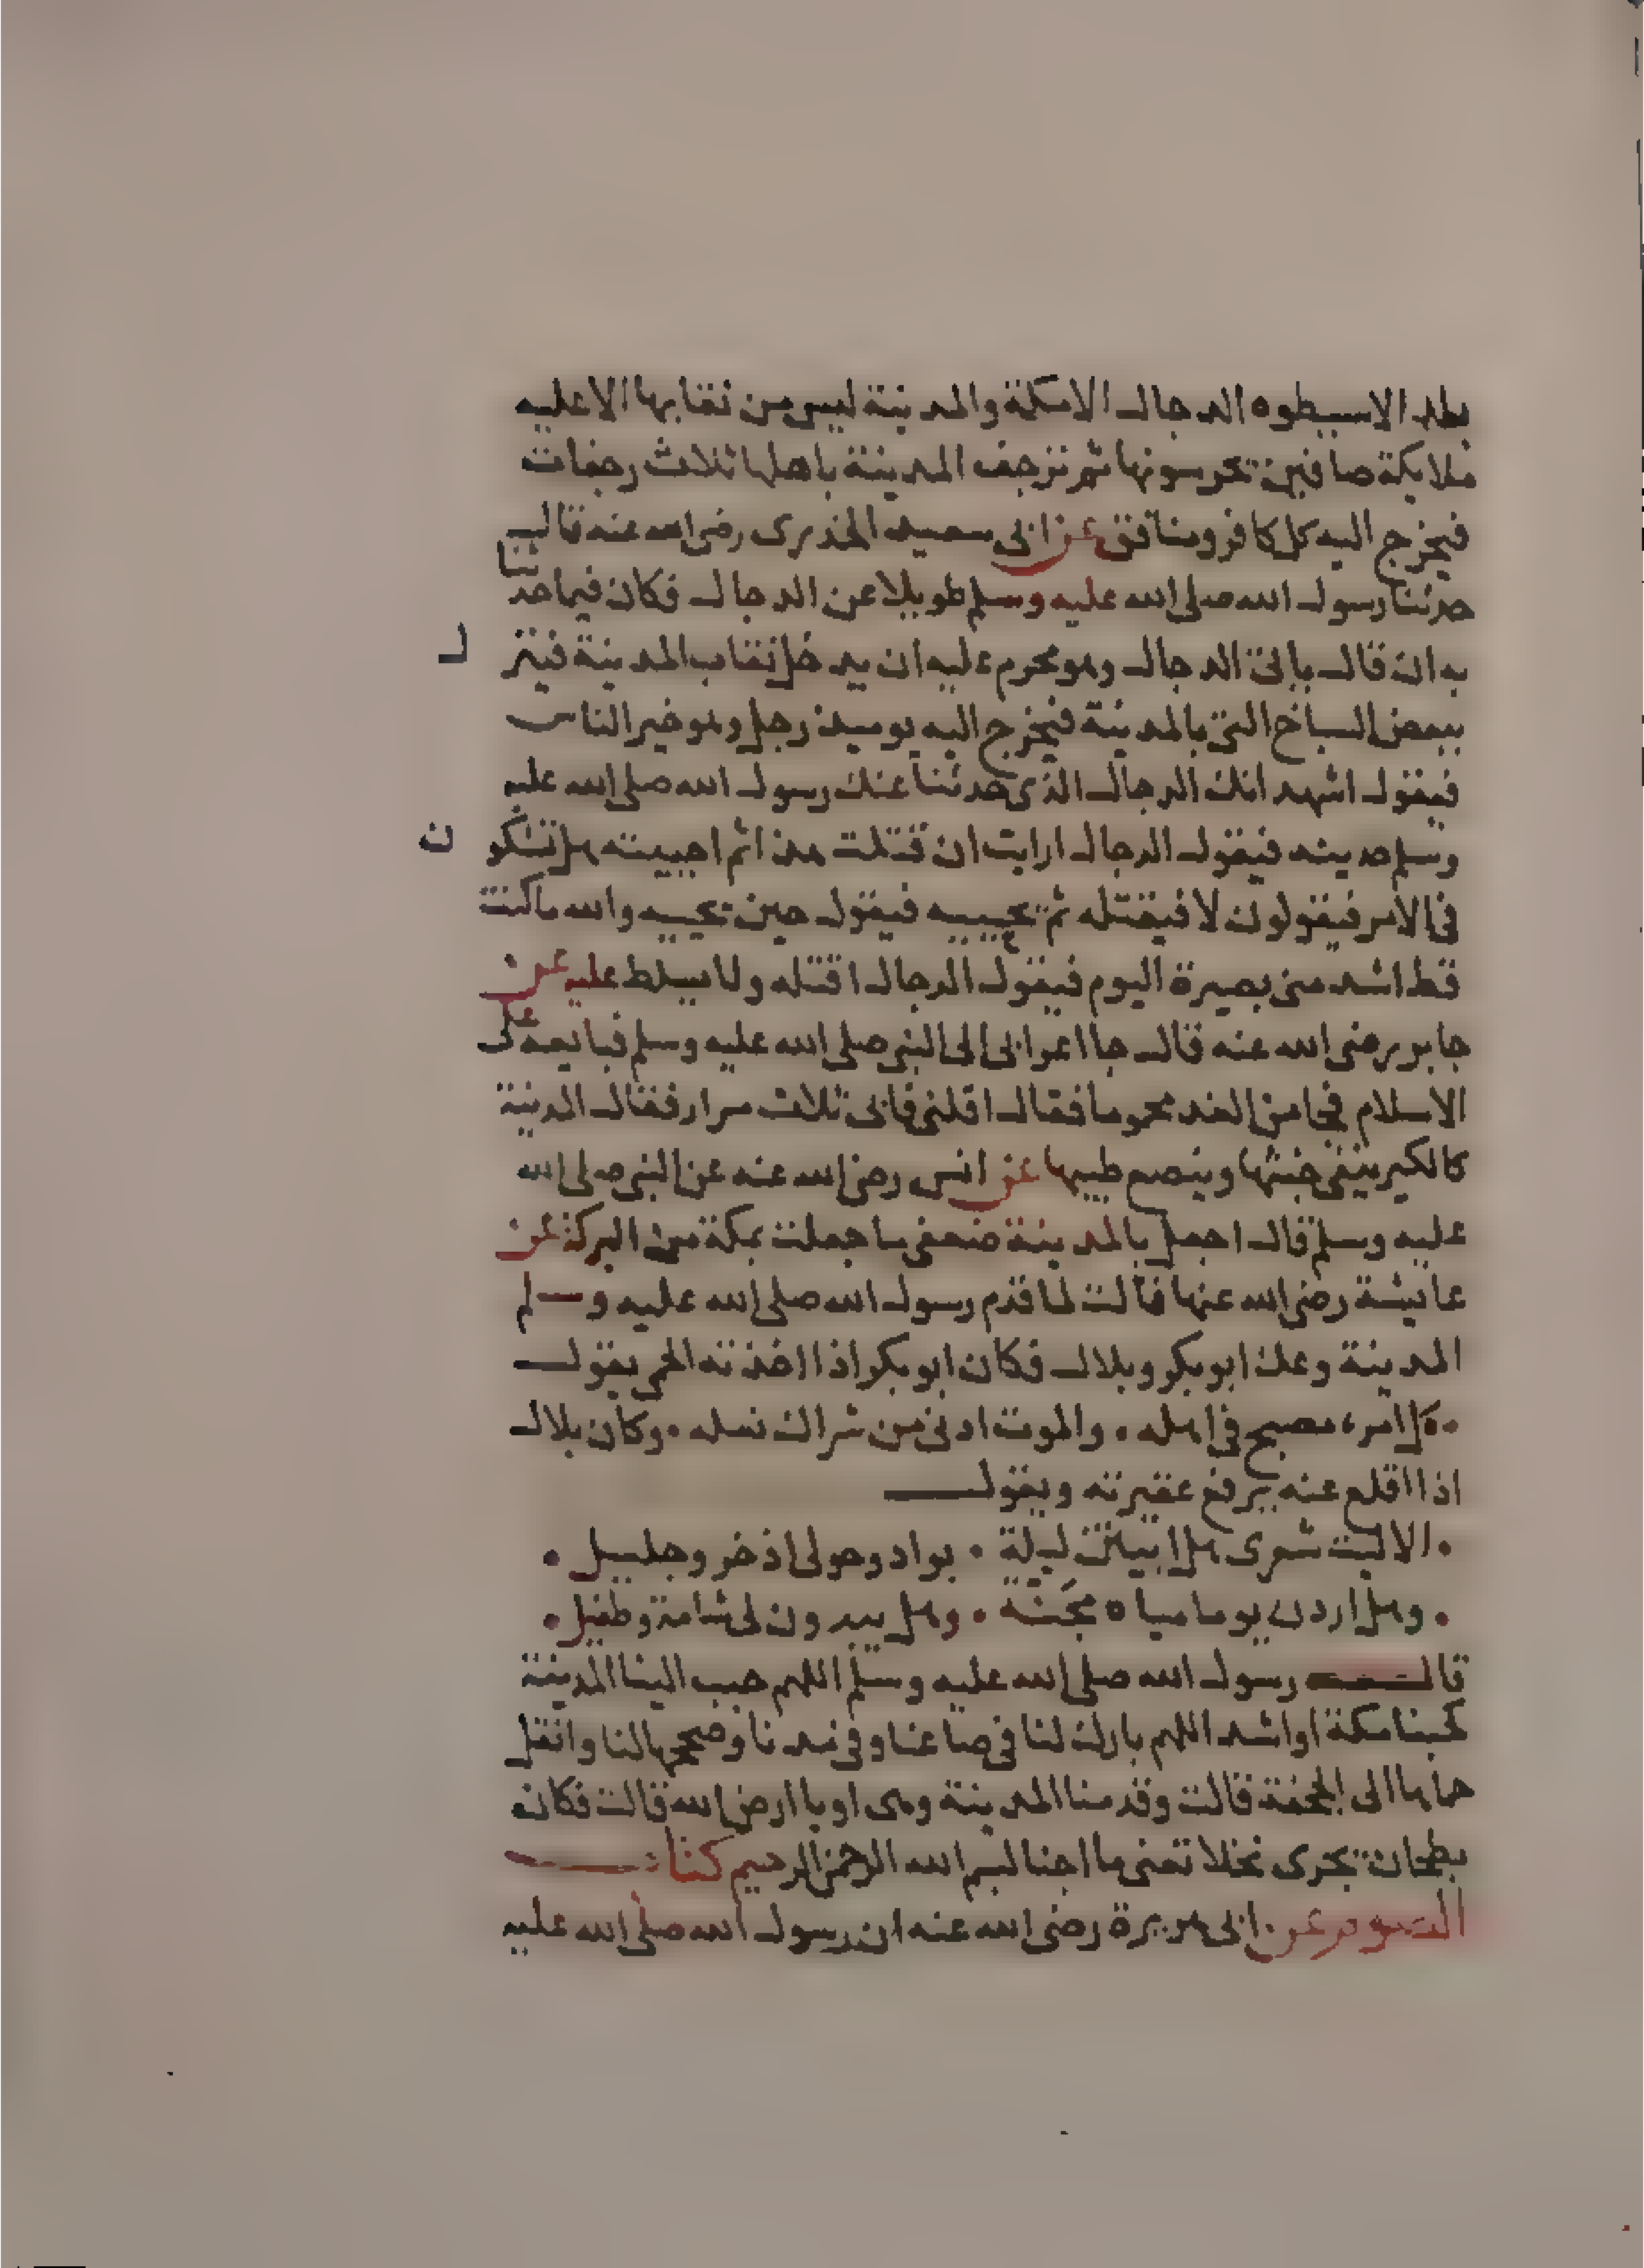 بلد الا سيطوه الدجال الا مكة والمدينة ليس من نقابها الا عليه
ملايكة صافين تحرسونها ثم ترجف المدينة باهلها ثلاث رجفات
فيخرج اليه كل كافر ومنافق عن ابى سعيد الخدرى رضى الله عنه قال
حدثنا رسول الله صلى الله عليه وسلم طويلا عن الدجال فكان فيما حدثنا
به ان قال ياتى الدجال وهو محرم عليه ان يدخل نقاب المدينة فينزل
ببعض السباخ التى بالمدينة فيخرج اليه يوميذ رجل وهو خير الناس
فيقول اشهد انك الدجال الذى حدثنا عنك رسول الله صلى الله عليه
وسلم حديثه فيقول الدجال ارايت ان قتلت هذا ثم احييته هل تشكون
فى الامر فيقولون لا فيقتله ثم يحييه فيقول حين يحييه والله ما كنت
قط اشد منى بصيرة اليوم فيقول الدجال اقتله ولا يسلط عليه عن
جابر رضى الله عنه قال جا اعرابى الى النبى صلى الله عليه وسلم فبايعه على
الاسلام فجا من الغد محموما فقال اقلنى فابى ثلاث مرار فقال المدينة
كالكير ينفى خبثها وينصع طيبها عن انس رضى الله عنه عن النبى صلى الله
عليه وسلم قال اجعل بالمدينة ضعفى ما جعلت بمكة من البركة عن
عايشة رضى الله عنها قالت لما قدم رسول الله صلى الله عليه وسلم
المدينة وعك ابو بكر وبلال فكان ابو بكر اذا اخذته الحمى يقول
• كل امرء مصبح فى اهله • والموت ادنى من شراك نعله • وكان بلال
اذا اقلع عنه يرفع عقيرته ويقول
• الا ليت شعرى هل ابيتن ليلة • بواد وحولى اذخر وجليل •
• وهل اردن يوما مياه مجنة • وهل يبدون لى شامة وطفيل •
قال رسول الله صلى الله عليه وسلم اللهم حبب الينا المدينة
كحبنا مكة او اشد اللهم بارك لنا فى صاعنا وفى مدنا وصححها لنا وانقل
حماها الى الجحفة قالت وقدمنا المدينة وهى اوبا ارض الله قالت فكان
بطحان يجرى نخلا تعنى ما اجنا بسم الله الرحمن الرحيم كتاب
الصوم عن ابى هريرة رضى الله عنه ان رسول الله صلى الله عليه